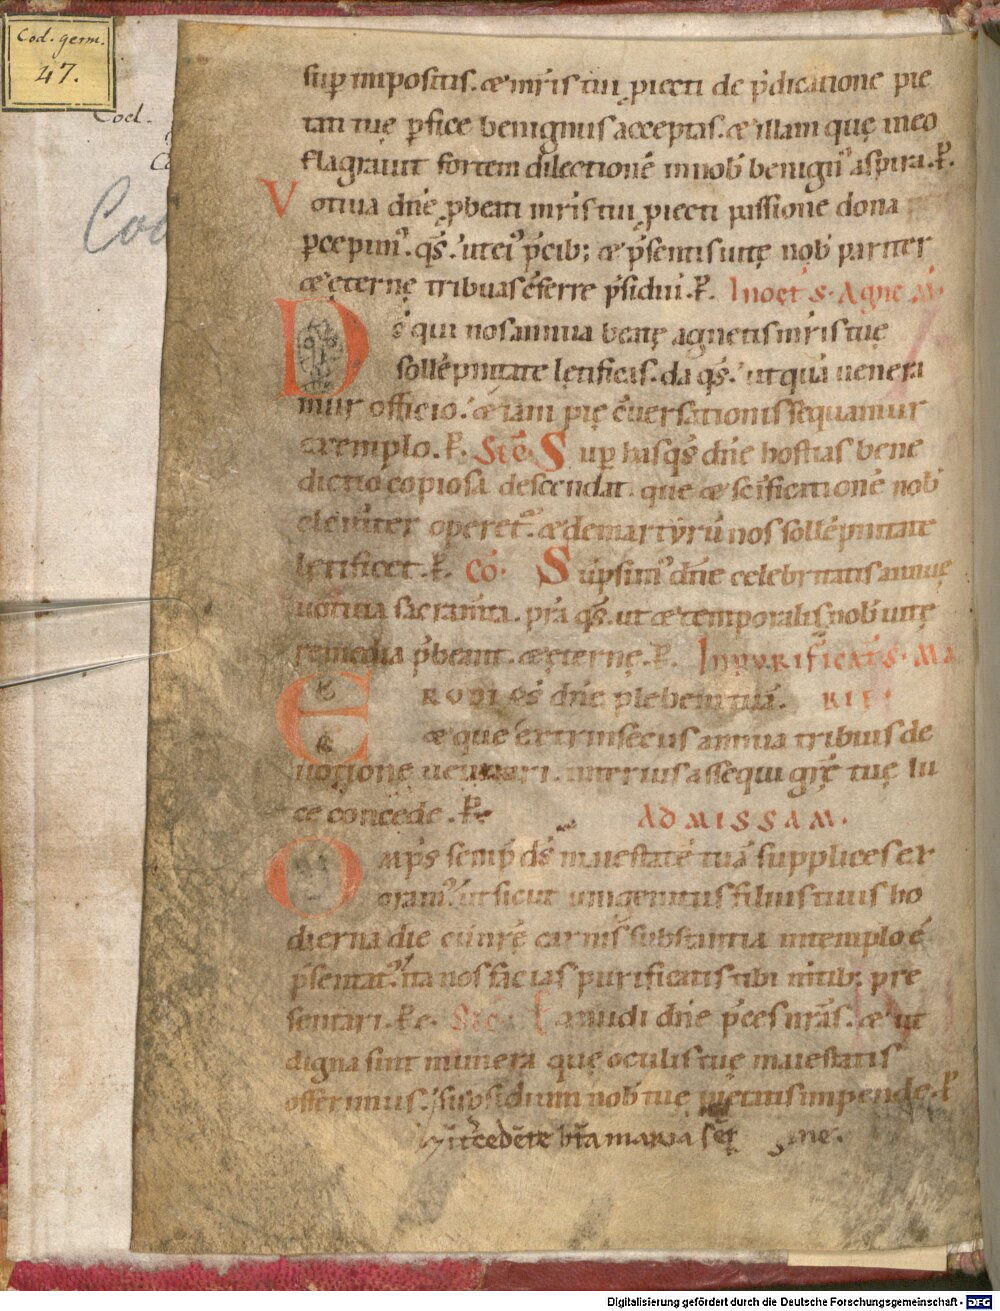 Cod. germ.
47.
Cod.
Co
Cod
sup impositis. & mr̄is tui ꝓiecti de p̄dicatione pie
tati tuę ꝑfice benignus acceptas. & illam quę in eo
flagrauit fortem dilectionē in nob̄ benign᾽ aspira. ꝑ.
Votiua dn̄e ꝓ beati mr̄is tui ꝓiecti passione dona
ꝑcepim᾽. qs̄. ut ei᾽ p̄cib; & p̄sentis uitę nob̄ pariter
& ęternę tribuas c̄ferre p̄sidiū. ꝑ. In oct̄ S. Agne M
Dš qui nos annua beatę agnetis mr̄is tuę
sollēpnitate lętificas. da qs̄. ut quā uenera
mur officio. & iam pię c̄uersationis sequamur
exemplo. ꝑ. Sec̄. Sup has qs̄ dn̄e hostias bene
dictio copiosa descendat. que & sc̄ificationē nob̄
clemter operet᾽. & de martyrū nos sollēpnitate
letificet. ꝑ. Cō. Sūpsim᾽ dn̄e celebritatis annuę
uotiua sacram̄ta. p̄ta qs̄. ut & temporalis nob̄ uitę
remedia p̄beant. & ęternę. ꝑ. In purificat̄ S. MA
ERUDI qs̄ dn̄e plebem tuā. RIE
& que extrinsecus annua tribuis de
uotione uenerari. interius assequi grę̄ tuę lu
ce concede. ꝑ. AD MISSAM.
Omp̄s semp̄ dš maiestatē tuā supplices ex
oram᾽. ut sicut unigenitus filius tuus ho
dierna die cū nr̄ē carnis substantia in templo ē
p̄sentat᾽. ita nos facias purificatis tibi mtib; pre
sentari. ꝑ e. Sec̄. Exaudi dn̄e p̄ces nr̄as. & ut
digna sint munera que oculis tuę maiestatis
offerimus. subsidium nob̄ tuę pietatis impende. ꝑ
int̄cedēte bt̄a maria
Digitalisierung gefördert durch die Deutsche Forschungsgemeinschaft - DFG